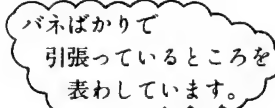 バネばかりで
引張っているところを
表わしています。